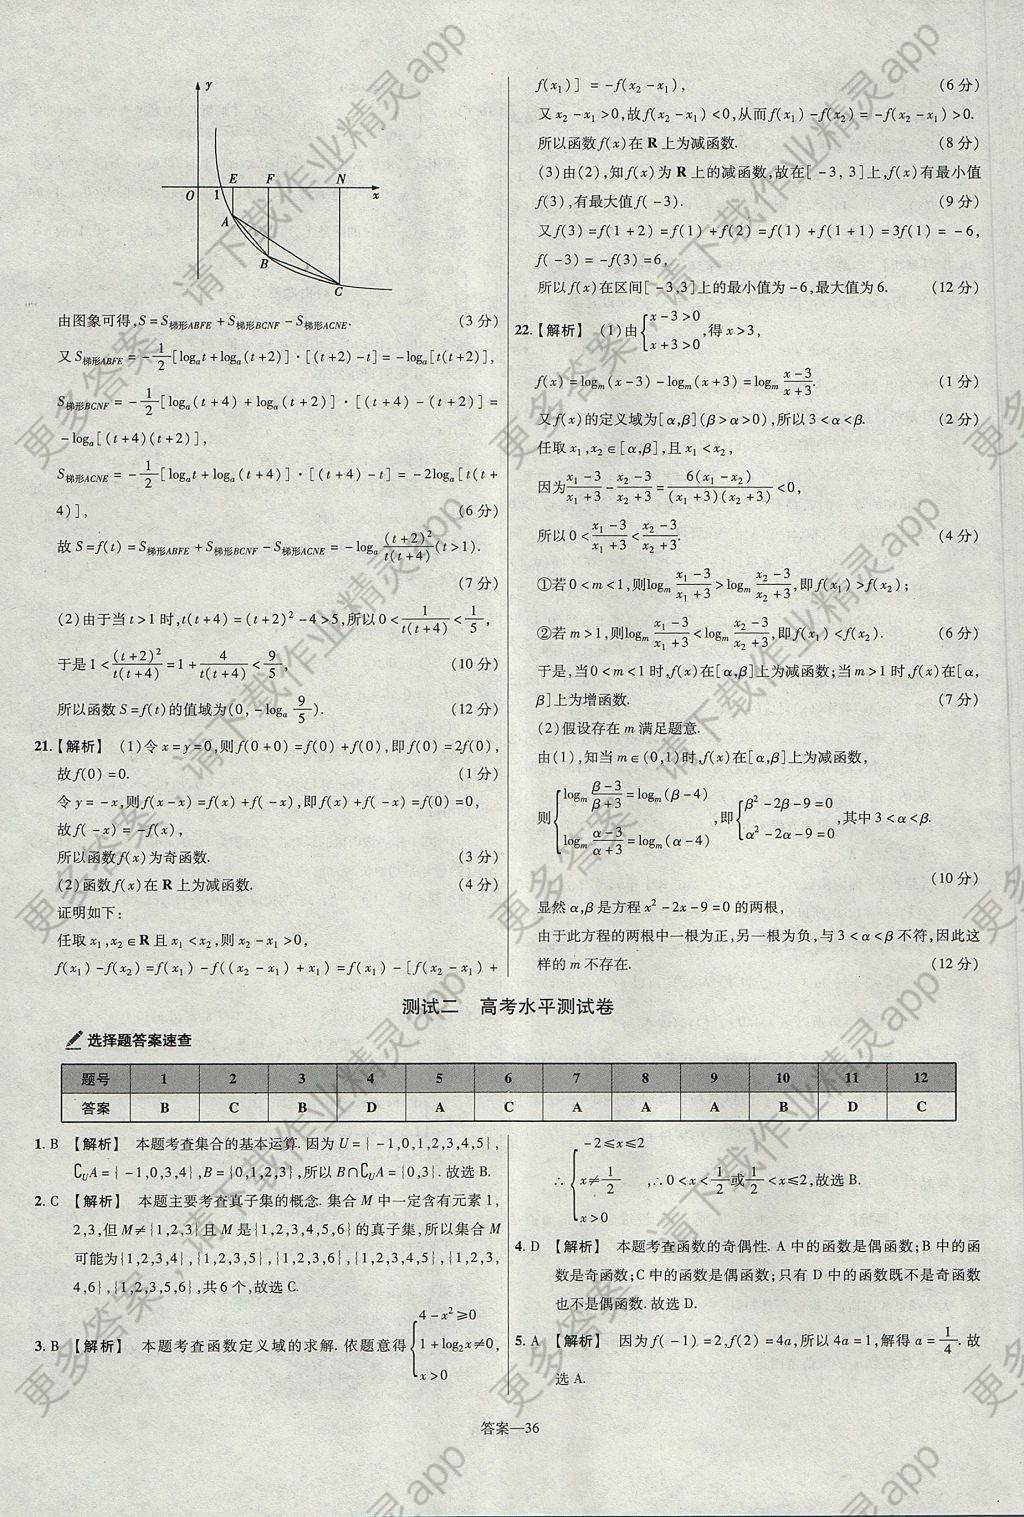 y
E F N
O 1 x
A
B
C
由图象可得,S=S梯形ABFE+S梯形BCNF-S梯形ACNE. (3分)
又S梯形ABFE=-1/2[logₐt+logₐ(t+2)]·[(t+2)-t]=-logₐ[t(t+2)],
S梯形BCNF=-1/2[logₐ(t+4)+logₐ(t+2)]·[(t+4)-(t+2)]=
-logₐ[(t+4)(t+2)],
S梯形ACNE=-1/2[logₐt+logₐ(t+4)]·[(t+4)-t]=-2logₐ[t(t+
4)], (6分)
故S=f(t)=S梯形ABFE+S梯形BCNF-S梯形ACNE=-logₐ (t+2)²/t(t+4) (t>1).
(7分)
(2)由于当t>1时,t(t+4)=(t+2)²-4>5,所以0<1/t(t+4)<1/5,
于是1<(t+2)²/t(t+4)=1+4/t(t+4)<9/5, (10分)
所以函数S=f(t)的值域为(0,-logₐ 9/5). (12分)
21.【解析】 (1)令x=y=0,则f(0+0)=f(0)+f(0),即f(0)=2f(0),
故f(0)=0. (1分)
令y=-x,则f(x-x)=f(x)+f(-x),即f(x)+f(-x)=f(0)=0,
故f(-x)=-f(x),
所以函数f(x)为奇函数. (3分)
(2)函数f(x)在R上为减函数. (4分)
证明如下:
任取x₁,x₂∈R且x₁<x₂,则x₂-x₁>0,
f(x₁)-f(x₂)=f(x₁)-f((x₂-x₁)+x₁)=f(x₁)-[f(x₂-x₁)+
f(x₁)]=-f(x₂-x₁), (6分)
又x₂-x₁>0,故f(x₂-x₁)<0,从而f(x₁)-f(x₂)=-f(x₂-x₁)>0.
所以函数f(x)在R上为减函数. (8分)
(3)由(2),知f(x)为R上的减函数,故在[-3,3]上,f(x)有最小值
f(3),有最大值f(-3). (9分)
又f(3)=f(1+2)=f(1)+f(2)=f(1)+f(1+1)=3f(1)=-6,
f(-3)=-f(3)=6,
所以f(x)在区间[-3,3]上的最小值为-6,最大值为6. (12分)
22.【解析】 (1)由{x-3>0 x+3>0,得x>3,
f(x)=logₘ(x-3)-logₘ(x+3)=logₘ (x-3)/(x+3). (1分)
又f(x)的定义域为[α,β](β>α>0),所以3<α<β. (2分)
任取x₁,x₂∈[α,β],且x₁<x₂,
因为(x₁-3)/(x₁+3)-(x₂-3)/(x₂+3)=6(x₁-x₂)/(x₁+3)(x₂+3)<0,
所以0<(x₁-3)/(x₁+3)<(x₂-3)/(x₂+3). (4分)
①若0<m<1,则logₘ (x₁-3)/(x₁+3)>logₘ (x₂-3)/(x₂+3),即f(x₁)>f(x₂);
②若m>1,则logₘ (x₁-3)/(x₁+3)<logₘ (x₂-3)/(x₂+3),即f(x₁)<f(x₂). (6分)
于是,当0<m<1时,f(x)在[α,β]上为减函数;当m>1时,f(x)在[α,
β]上为增函数. (7分)
(2)假设存在m满足题意.
由(1),知当m∈(0,1)时,f(x)在[α,β]上为减函数,
则{logₘ (β-3)/(β+3)=logₘ(β-4) logₘ (α-3)/(α+3)=logₘ(α-4),即{β²-2β-9=0 α²-2α-9=0,其中3<α<β.
(10分)
显然α,β是方程x²-2x-9=0的两根,
由于此方程的两根中一根为正,另一根为负,与3<α<β不符,因此这
样的m不存在. (12分)
测试二 高考水平测试卷
选择题答案速查
题号 1 2 3 4 5 6 7 8 9 10 11 12
答案 B C B D A C A A A B D C
1. B 【解析】 本题考查集合的基本运算.因为U={-1,0,1,2,3,4,5},
∁UA={-1,0,3,4},B={0,1,2,3},所以B∩∁UA={0,3}.故选B.
2. C 【解析】 本题主要考查真子集的概念.集合M中一定含有元素1,
2,3,但M≠{1,2,3}且M是{1,2,3,4,5,6}的真子集,所以集合M
可能为{1,2,3,4},{1,2,3,5},{1,2,3,6},{1,2,3,4,5},{1,2,3,
4,6},{1,2,3,5,6},共6个,故选C.
3. B 【解析】 本题考查函数定义域的求解.依题意得{4-x²≥0 1+log₂x≠0, x>0
∴{-2≤x≤2 x≠1/2 x>0,∴0<x<1/2或1/2<x≤2,故选B.
4. D 【解析】 本题考查函数的奇偶性.A中的函数是偶函数;B中的函
数是奇函数;C中的函数是偶函数;只有D中的函数既不是奇函数
也不是偶函数.故选D.
5. A 【解析】 因为f(-1)=2,f(2)=4a,所以4a=1,解得a=1/4.故
选A.
答案—36
更多答案,请下载作业精灵app